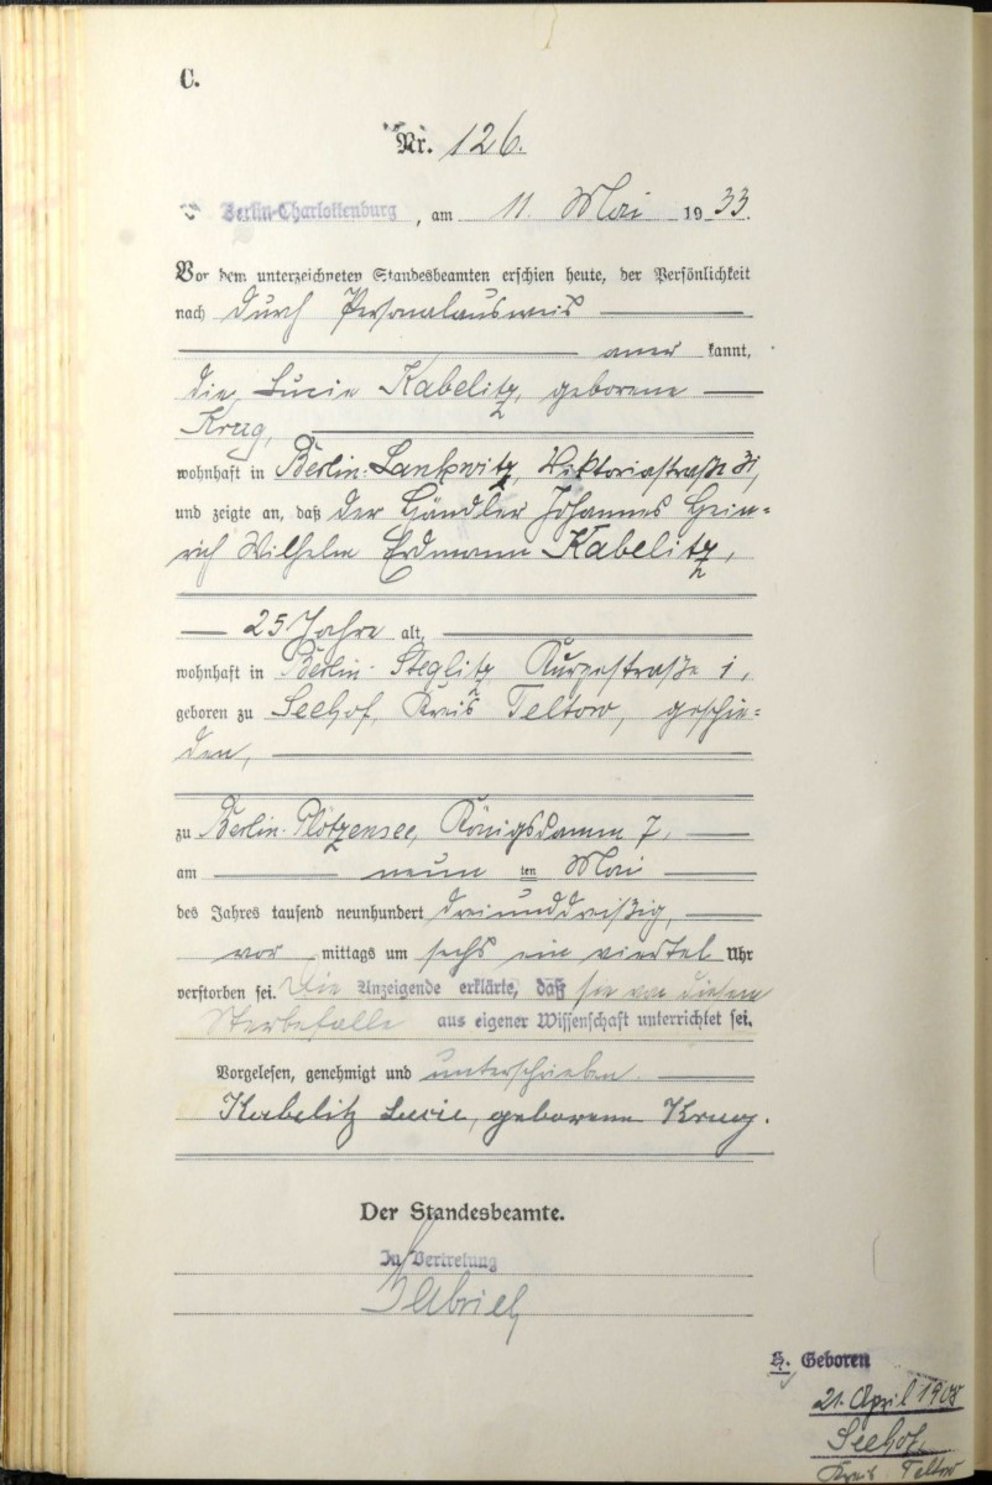 C.
Nr. 126.
Berlin-Charlottenburg, am 11. Mai 1933.
Vor dem unterzeichneten Standesbeamten erschien heute, der Persönlichkeit
nach durch Personalausweis
aner kannt,
die Lucie Kabelitz, geborene
Krug,
wohnhaft in Berlin-Lankwitz, Viktoriastraße 31,
und zeigte an, daß der Händler Johannes Hein-
rich Wilhelm Erdmann Kabelitz,
25 Jahre alt,
wohnhaft in Berlin-Steglitz Kurzestraße 1,
geboren zu Seehof, Kreis Teltow, geschie-
den,
zu Berlin-Plötzensee, Königsdamm 7,
am neun ten Mai
des Jahres tausend neunhundert dreiunddreißig,
vor mittags um sechs ein viertel Uhr
verstorben sei. Die Anzeigende erklärte, daß sie von diesem
Sterbefalle aus eigener Wissenschaft unterrichtet sei.
Vorgelesen, genehmigt und unterschrieben
Kabelitz Lucie, geborene Krug.
Der Standesbeamte.
In Vertretung
Gabriel
S. Geboren
21. April 1908
Seehof
Kreis Teltow